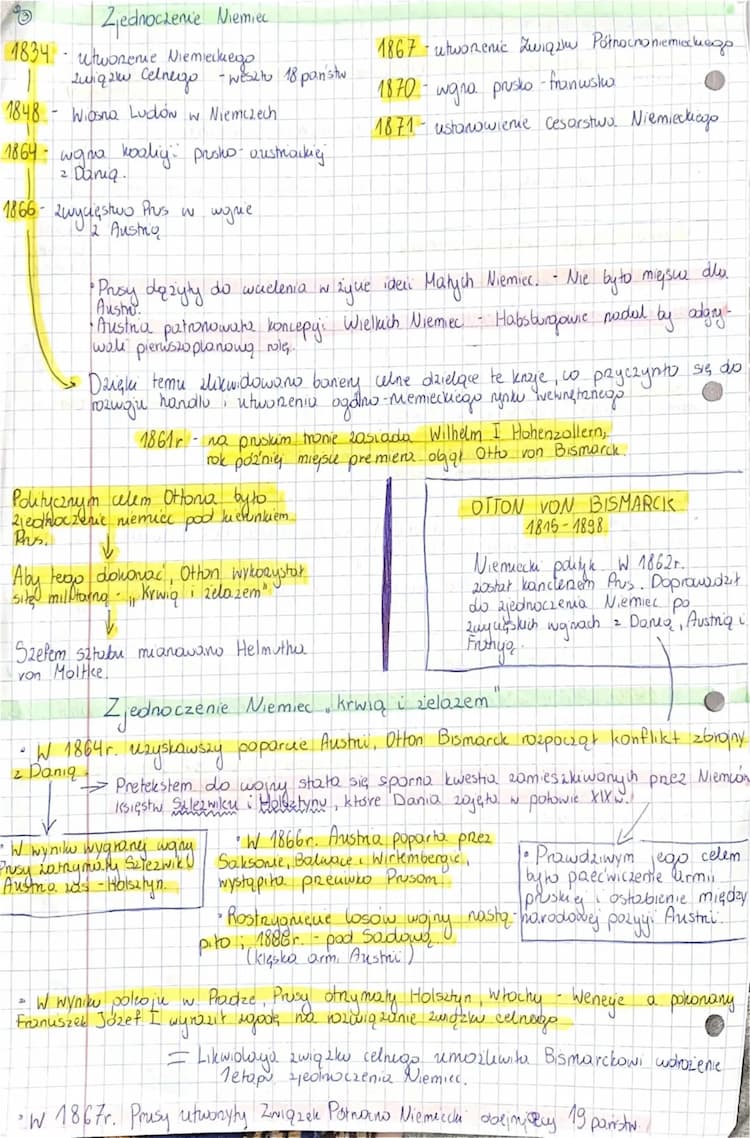 ③
Zjednoczenie Niemiec
1834 - utworzenie Niemieckiego
związku Celnego - weszło 18 państw
1848 - Wiosna Ludów w Niemczech
1864 - wojna koalicji prusko-austriackiej
z Danią.
1866 - zwycięstwo Prus w wojnie
z Austrią
1867 - utworzenie Związku Północnoniemieckiego
1870 - wojna prusko-francuska
1871 - ustanowienie Cesarstwa Niemieckiego
• Prusy dążyły do wcielenia w życie idei Małych Niemiec. - Nie było miejsca dla
Austrii.
• Austria patronowała koncepcji Wielkich Niemiec - Habsburgowie nadal by odgry-
wali pierwszoplanową rolę.
Dzięki temu zlikwidowano bariery celne dzielące te kraje, co przyczyniło się do
rozwoju handlu i utworzenia ogólno-niemieckiego rynku wewnętrznego
1861r - na pruskim tronie zasiada Wilhelm I Hohenzollern,
rok później miejsce premiera objął Otto von Bismarck.
Politycznym celem Ottona było
zjednoczenie niemiec pod kierunkiem
Prus.
Aby tego dokonać, Otton wykorzystał
siłę militarną - „Krwią i żelazem"
Szefem sztabu mianowano Helmutha
von Moltke.
OTTON VON BISMARCK
1815-1898
Niemiecki polityk. W 1862r.
został kanclerzem Prus. Doprowadził
do zjednoczenia Niemiec po
zwycięskich wojnach z Danią, Austrią i
Francją.
Zjednoczenie Niemiec „krwią i żelazem"
• W 1864r. uzyskawszy poparcie Austrii, Otton Bismarck rozpoczął konflikt zbrojny
z Danią.
Pretekstem do wojny stała się sporna kwestia zamieszkiwanych przez Niemców
księstw Szlezwiku i Holsztynu, które Dania zajęła w połowie XIX w.
• W wyniku wygranej wojny
Prusy zatrzymały Szlezwik,
Austria zaś - Holsztyn.
• W 1866r. Austria poparta przez
Saksonie, Bawarie i Wirtembergie,
wystąpiła przeciwko Prusom
• Rozstrzygnięcie losów wojny nastą-
piło 1886r. - pod Sadową
(klęska armi Austrii)
• Prawdziwym jego celem
było przećwiczenie armii
pruskiej i osłabienie między
narodowej pozycji Austrii.
• W wyniku pokoju w Pradze, Prusy otrzymały Holsztyn, Włochy - Wenecje a pokonany
Franciszek Józef I wyraził zgodę na rozwiązanie związku celnego
= Likwidacja związku celnego umożliwiła Bismarckowi wdrożenie
1 etapu zjednoczenia Niemiec.
• W 1867r. Prusy utworzyły Związek Północno Niemiecki obejmujący 19 państw.